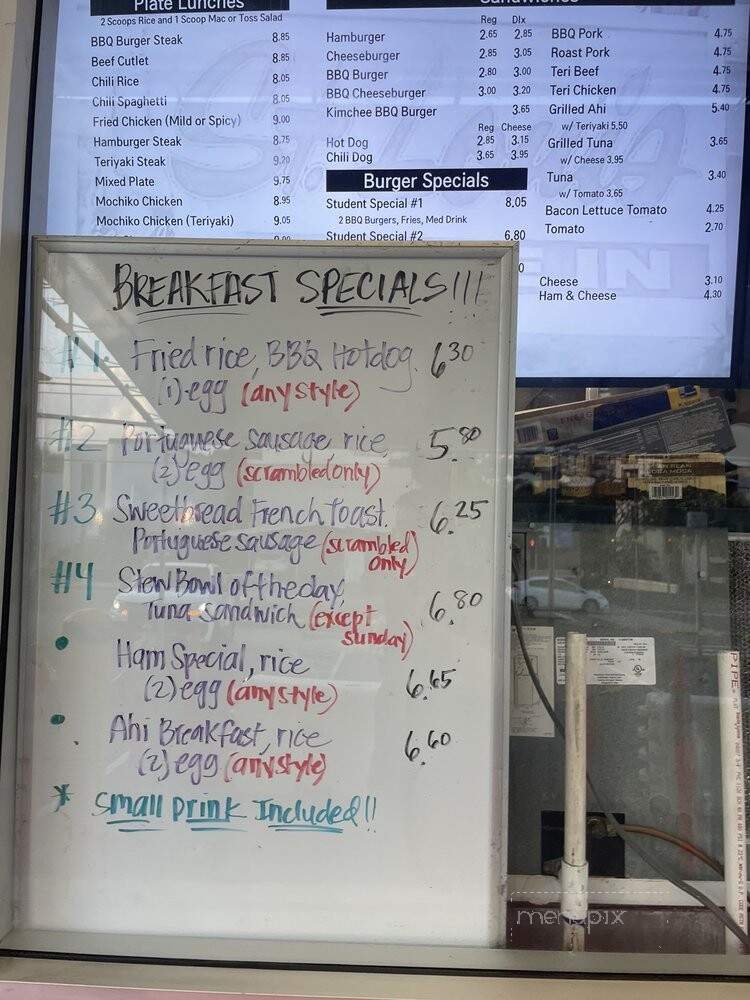 Plate Lunches
2 Scoops Rice and 1 Scoop Mac or Toss Salad
BBQ Burger Steak 8.85
Beef Cutlet 8.85
Chili Rice 8.05
Chili Spaghetti 8.05
Fried Chicken (Mild or Spicy) 9.00
Hamburger Steak 8.75
Teriyaki Steak 9.20
Mixed Plate 9.75
Mochiko Chicken 8.95
Mochiko Chicken (Teriyaki) 9.05
Sandwiches
Reg Dlx
Hamburger 2.65 2.85
Cheeseburger 2.85 3.05
BBQ Burger 2.80 3.00
BBQ Cheeseburger 3.00 3.20
Kimchee BBQ Burger 3.65
Reg Cheese
Hot Dog 2.85 3.15
Chili Dog 3.65 3.95
Burger Specials
Student Special #1 8.05
2 BBQ Burgers, Fries, Med Drink
Student Special #2 6.80
BBQ Pork 4.75
Roast Pork 4.75
Teri Beef 4.75
Teri Chicken 4.75
Grilled Ahi 5.40
w/ Teriyaki 5.50
Grilled Tuna 3.65
w/ Cheese 3.95
Tuna 3.40
w/ Tomato 3.65
Bacon Lettuce Tomato 4.25
Tomato 2.70
Cheese 3.10
Ham & Cheese 4.30
BREAKFAST SPECIALS!!!
#1. Fried rice, BBQ Hotdog. 6.30
(1) egg (any style)
#2 Portuguese Sausage, rice, 5.80
(2) egg (scrambled only)
#3 Sweetbread French Toast. 6.25
Portuguese Sausage (scrambled
only)
#4 Stew Bowl of the day, 6.80
Tuna Sandwich (except
sunday)
• Ham Special, rice 6.65
(2) egg (any style)
• Ahi Breakfast, rice 6.60
(2) egg (any style)
* Small Drink Included!!
PIPE
menupix